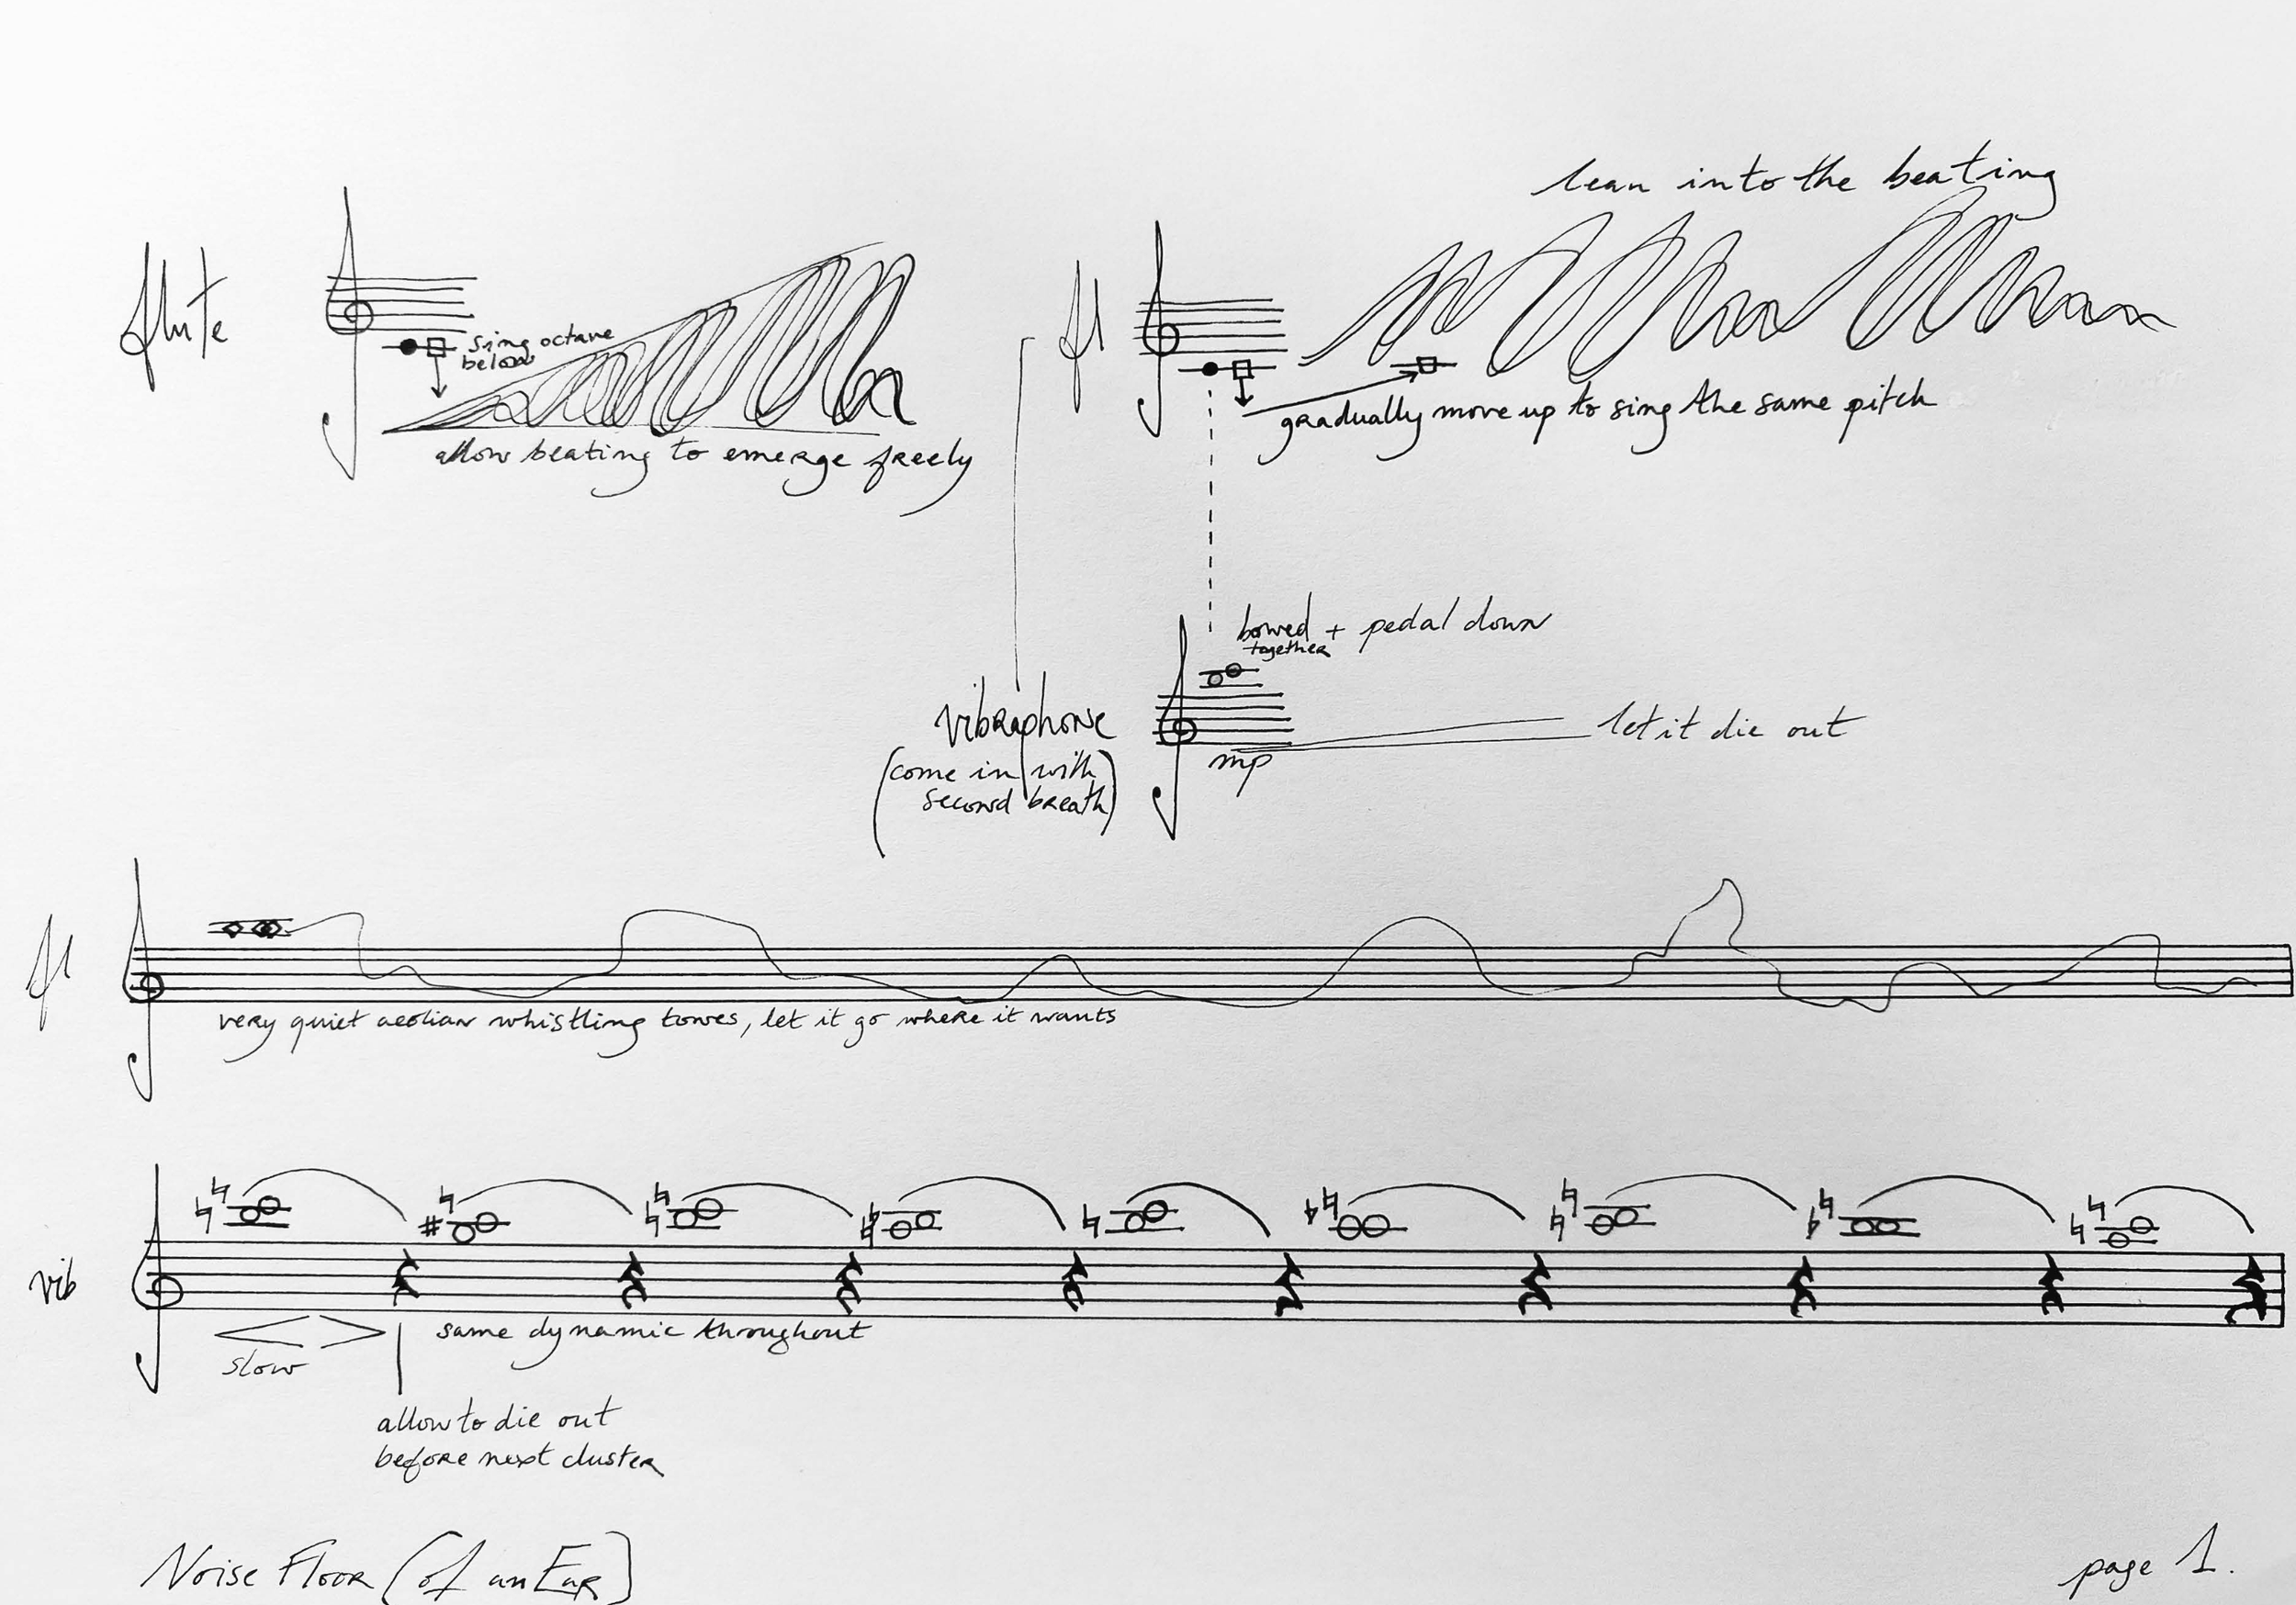 flute
sing octave
below
allow beating to emerge freely
fl
lean into the beating
gradually move up to sing the same pitch
vibraphone
(come in with
second breath)
bowed + pedal down
together
mp
let it die out
fl
very quiet aeolian whistling tones, let it go where it wants
vib
slow
same dynamic throughout
allow to die out
before next cluster
Noise Floor (of an Ear)
page 1.